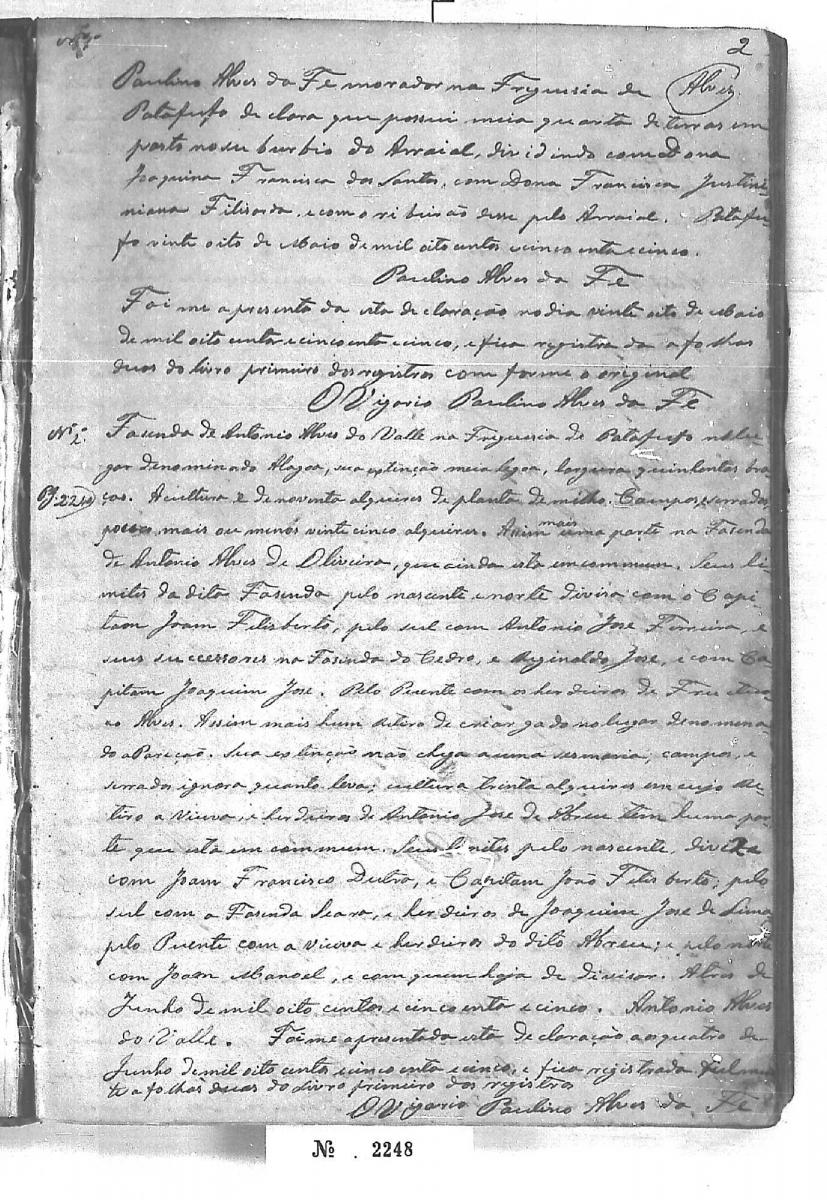 2
Alves
Paulino Alves da Fe morador na Freguesia de
Patafufo declara que possui meia quarta de terras em
parto no su burbio do Arraial, dividindo com Dona
Joaquina Francisca dos Santos, com Dona Francisca Justini-
niana Filisarda, e com o ribeirão desse pelo Arraial. Patafu-
fo vinte oito de Maio de mil oito centos e cinco enta e cinco.
Paulino Alves da Fe
Foi me apresentada esta declaração no dia vinte oito de Maio
de mil oito centos e cinco enta e cinco, e fica registrada a folhas
duas do livro primeiro dos registros comforme o original
O Vigario Paulino Alves da Fe
Nº 2º
Fasenda de Antonio Alves do Valle na Freguesia de Patafufo no lu-
gar denominado Alagoa, sua extinção meia legoa, largura quinhentas bra
ças. A cultura é de noventa alqueires de planta de milho. Campos, e serrados
pouco mais ou menós vinte cinco alqueires. Assim mais uma parte na Fasenda
de Antonio Alves de Oliveira, que ainda esta em commum. Seus li-
mites da dita Fasenda pelo nascente e norte divisa com o Capi
tam Joam Felisberto, pelo sul com Antonio Jose Ferreira, e
seus successores na Fasenda do Cedro, e Reginaldo José, e com Ca
pitam Joaquim Jose. Pelo Puente com os herdeiros de
Alves. Assim mais hum Retiro de criar gado no lugar denomina
do aPareção. Sua extinção não chega a uma sesmaria, campos, e
serrados ignora quanto leva; cultura trinta alqueires em cujo Re
tiro a Viuva, e herdeiros de Antonio Jose de Abreu tem huma par-
te que esta em commum. Seus limites pelo nascente, diviza
com Joam Francisco Dutra, e Capitam João Felisberto; pelo
sul com a Fasenda Seara, e herdeiros de Joaquim Jose de Lima
pelo Puente com a viuva e herdeiros do dito Abreu; e pelo norte
com Joam Manoel, e com quem haja de divisar. Atres de
Junho de mil oito centos e cinco enta e cinco. Antonio Alves
do Valle. Foi me apresentada esta declaração aos quatro de
Junho de mil oito centos e cinco enta e cinco, e fica registrada
te a folhas duas do livro primeiro dos registros
O Vigario Paulino Alves da Fe
Nº . 2248